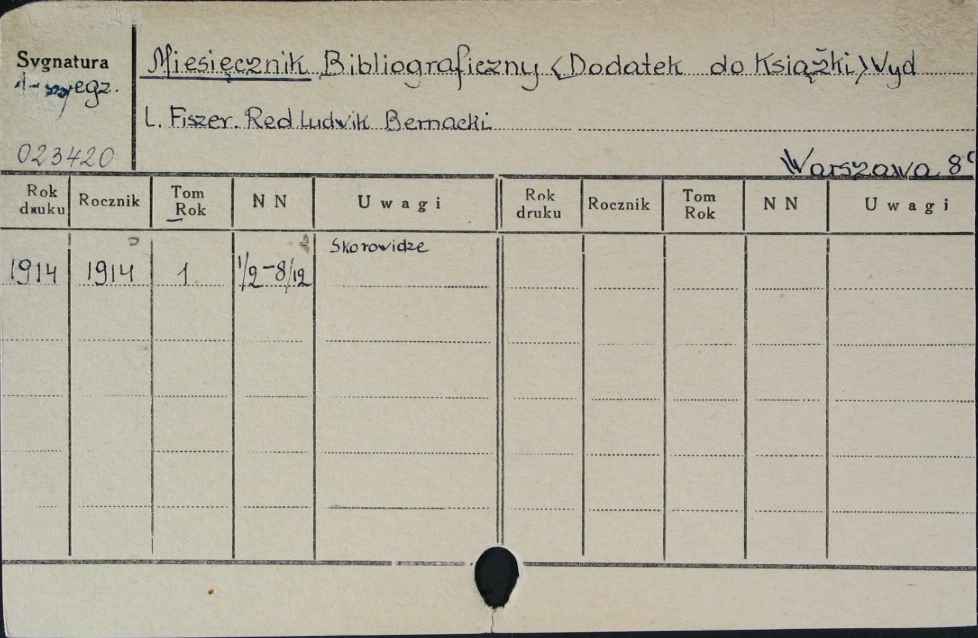 Sygnatura
egz.
023420
Miesięcznik Bibliograficzny <Dodatek do Książki> Wyd
L. Fiszer. Red Ludwik Bernacki
Warszawa 8°
Rok druku Rocznik Tom Rok NN Uwagi Rok druku Rocznik Tom Rok NN Uwagi
Skorowidze
1914 1914 1. 1/2-8/12